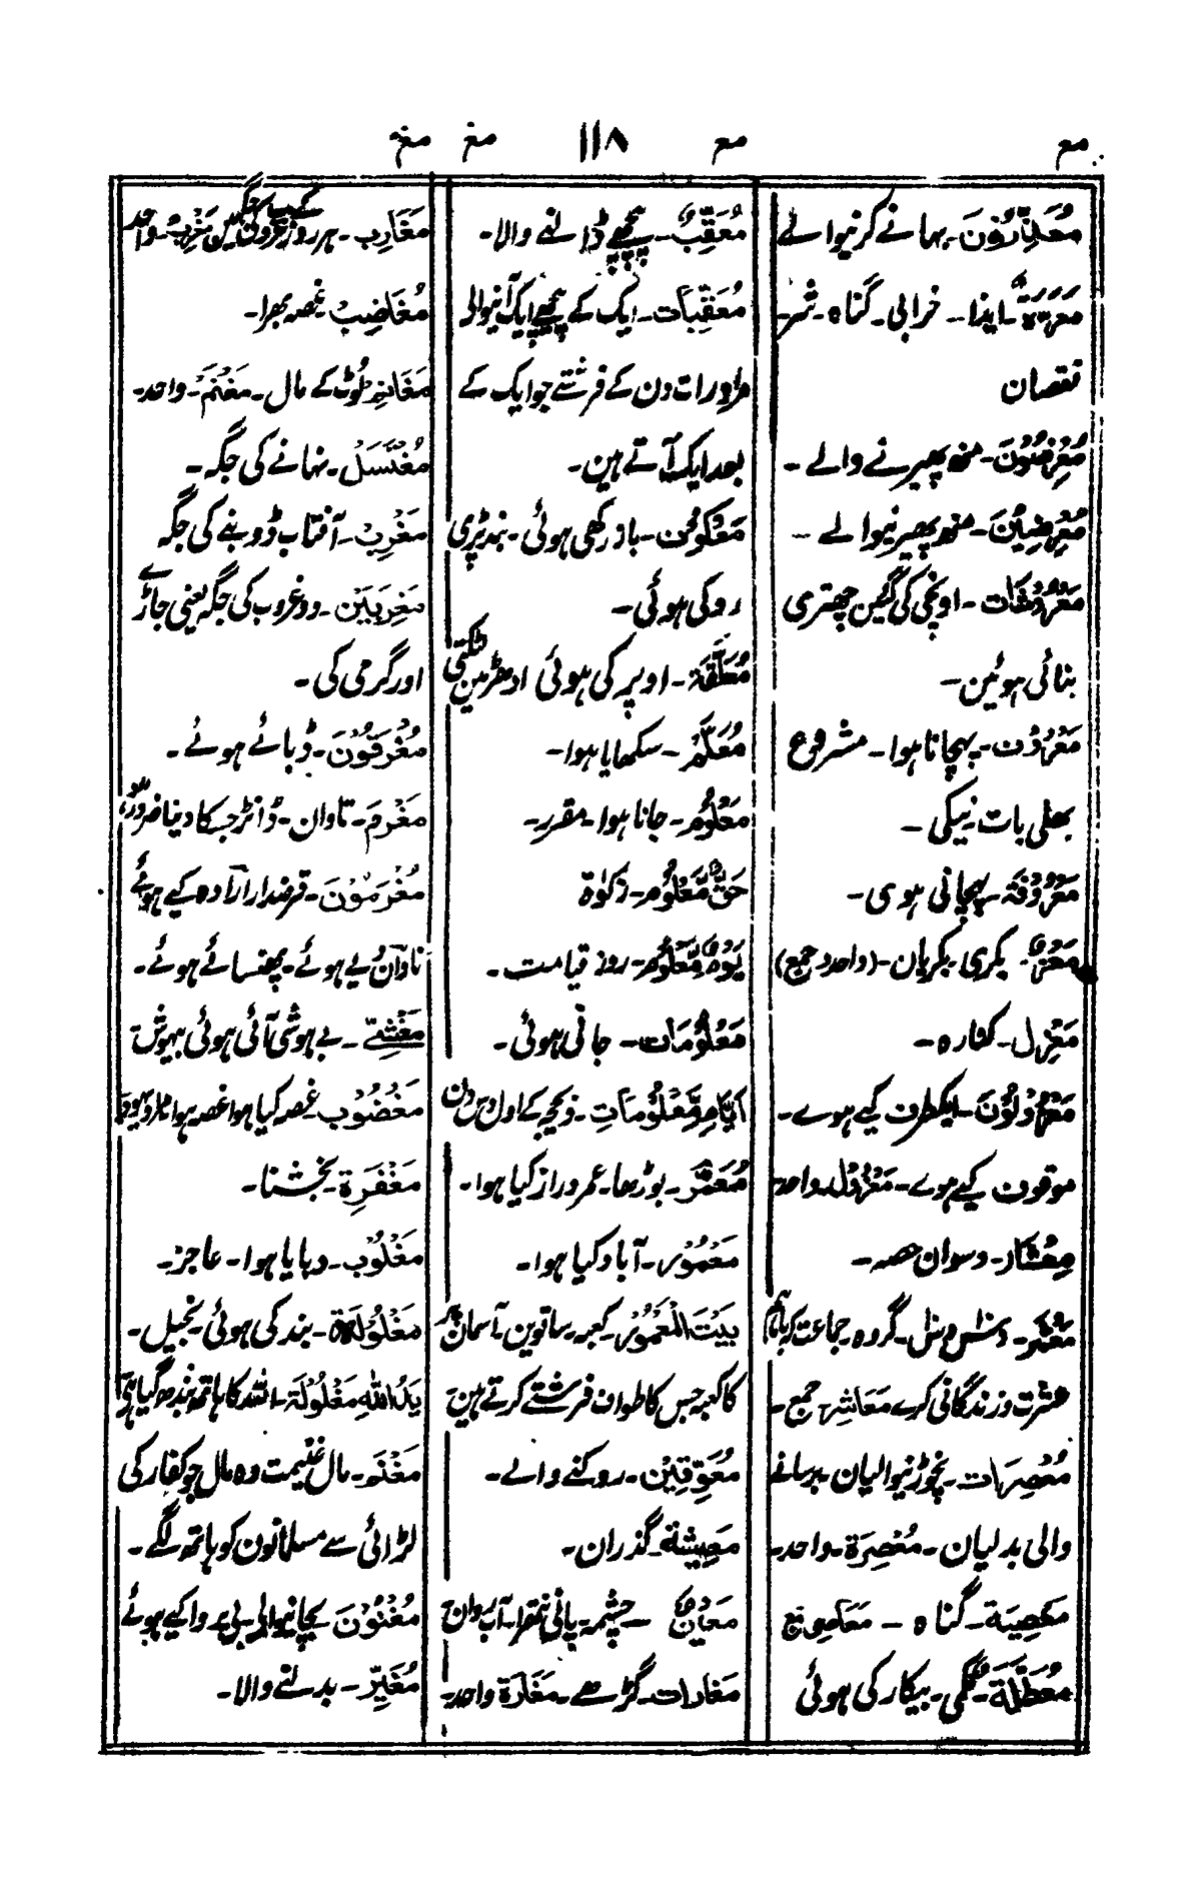 مع مع ۱۱۸ مغ مغ
مُعَذِّرُوْنَ۔ بہانے کرنیوالے
مَعَرَّةٌ۔ ایذا۔ خرابی۔ گناہ۔
نقصان
مُعْرِضُوْنَ۔ منھ پھیرنے والے۔
مُعْرِضِيْنَ۔ منھ پھیرنیوالے۔
مَعْرُوْشَات۔ اونچی کی گئین چھتری
بنائی ہوئین۔
مَعْرُوْف۔ پہچانا ہوا۔ مشروع
بھلی بات نیکی۔
مَعْرُوْفَة۔ پہچانی ہوی۔
مَعْزٌ۔ بکری۔ بکریان۔ (واحد و جمع)
مَعْزِل۔ کنارہ۔
مَعْزُوْلُوْنَ۔ ایکطرف کیے ہوے۔
موقوف کیے ہوے۔ مَعْزُوْل۔ واحد
مِعْشَار۔ دسوان حصہ۔
مَعْشَر۔ گروہ۔ جماعت کہ باہم
عشرت و زندگانی کرے مَعَاشِر جمع۔
مُعْصِرَات۔ نچوڑنیوالیان۔ برسانے
والی بدلیان۔ مُعْصِرَة۔ واحد۔
مَعْصِيَة۔ گناہ۔ مَعَاصِی جمع
مُعَطَّلَة۔ نکمی۔ بیکار کی ہوئی
مُعَقِّبٌ۔ پیچھے ڈالنے والا۔
مُعَقِّبَات۔ ایک کے پیچھے ایک آنیوالی
مراد رات دن کے فرشتے جو ایک کے
بعد ایک آتے ہین۔
مَعْكُوْف۔ باز رکھی ہوئی۔ بند پڑی
روکی ہوئی۔
مُعَلَّقَة۔ اوپر کی ہوئی ادھڑمین لٹکتی
مُعَلَّمٌ۔ سکھایا ہوا۔
مَعْلُوْم۔ جانا ہوا۔ مقرر۔
حَقٌّ مَّعْلُوْم۔ زکوٰة
يَوْمٌ مَّعْلُوْم۔ روز قیامت۔
مَعْلُوْمَات۔ جانی ہوئی۔
اَيَّامٍ مَّعْلُوْمَاتٍ۔ ذیحجہ کے اول دس دن
مُعَمَّر۔ بوڑھا۔ عمر دراز کیا ہوا۔
مَعْمُوْر۔ آباد کیا ہوا۔
بَيْتَ الْمَعْمُوْر۔ کعبہ۔ ساتوین آسمان پر
کا کعبہ جس کا طواف فرشتے کرتے ہین
مُعَوِّقِيْن۔ روکنے والے۔
مَعِيْشَة۔ گذران۔
مَعِيْنٌ۔ چشمہ۔ پانی نتھرا۔ آب روان
مَغَارَات۔ گڑھے۔ مَغَارَة واحد۔
مَغَارِب۔ ہر روز غروب کی جگہین مَغْرِب۔ واحد
مُغَاضِب۔ غصہ بھرا۔
مَغَانِم۔ لُوٹ کے مال۔ مَغْنَم۔ واحد۔
مُغْتَسَل۔ نہانے کی جگہ۔
مَغْرِب۔ آفتاب ڈوبنے کی جگہ
مَغْرِبَيْن۔ دو غروب کی جگہ یعنی جاڑے
اور گرمی کی۔
مُغْرَقُوْنَ۔ ڈبائے ہوئے۔
مَغْرَم۔ تاوان۔ ڈانڑ جسکا دینا ضرور ہو
مُغْرَمُوْنَ۔ قرضدار ارادہ کیے ہوئے
تاوان لیے ہوئے۔ پھنسائے ہوئے۔
مَغْشِيّ۔ بے ہوشی آئی ہوئی بیہوش
مَغْضُوْب۔ غصہ کیا ہوا غصہ ہوا مراد یہود
مَغْفِرَة۔ بخشنا۔
مَغْلُوْب۔ دبایا ہوا۔ عاجز۔
مَغْلُوْلَة۔ بند کی ہوئی۔ بخیل۔
يَدُ اللهِ مَغْلُوْلَة۔ اللہ کا ہاتھ بندھ گیا ہی
مَغْنَم۔ مال غنیمت وہ مال جو کفار کی
لڑائی سے مسلمانون کو ہاتھ لگے۔
مُغْنُوْنَ۔ بچانیوالے۔ بے پروا کیے ہوئے
مُغَيِّر۔ بدلنے والا۔